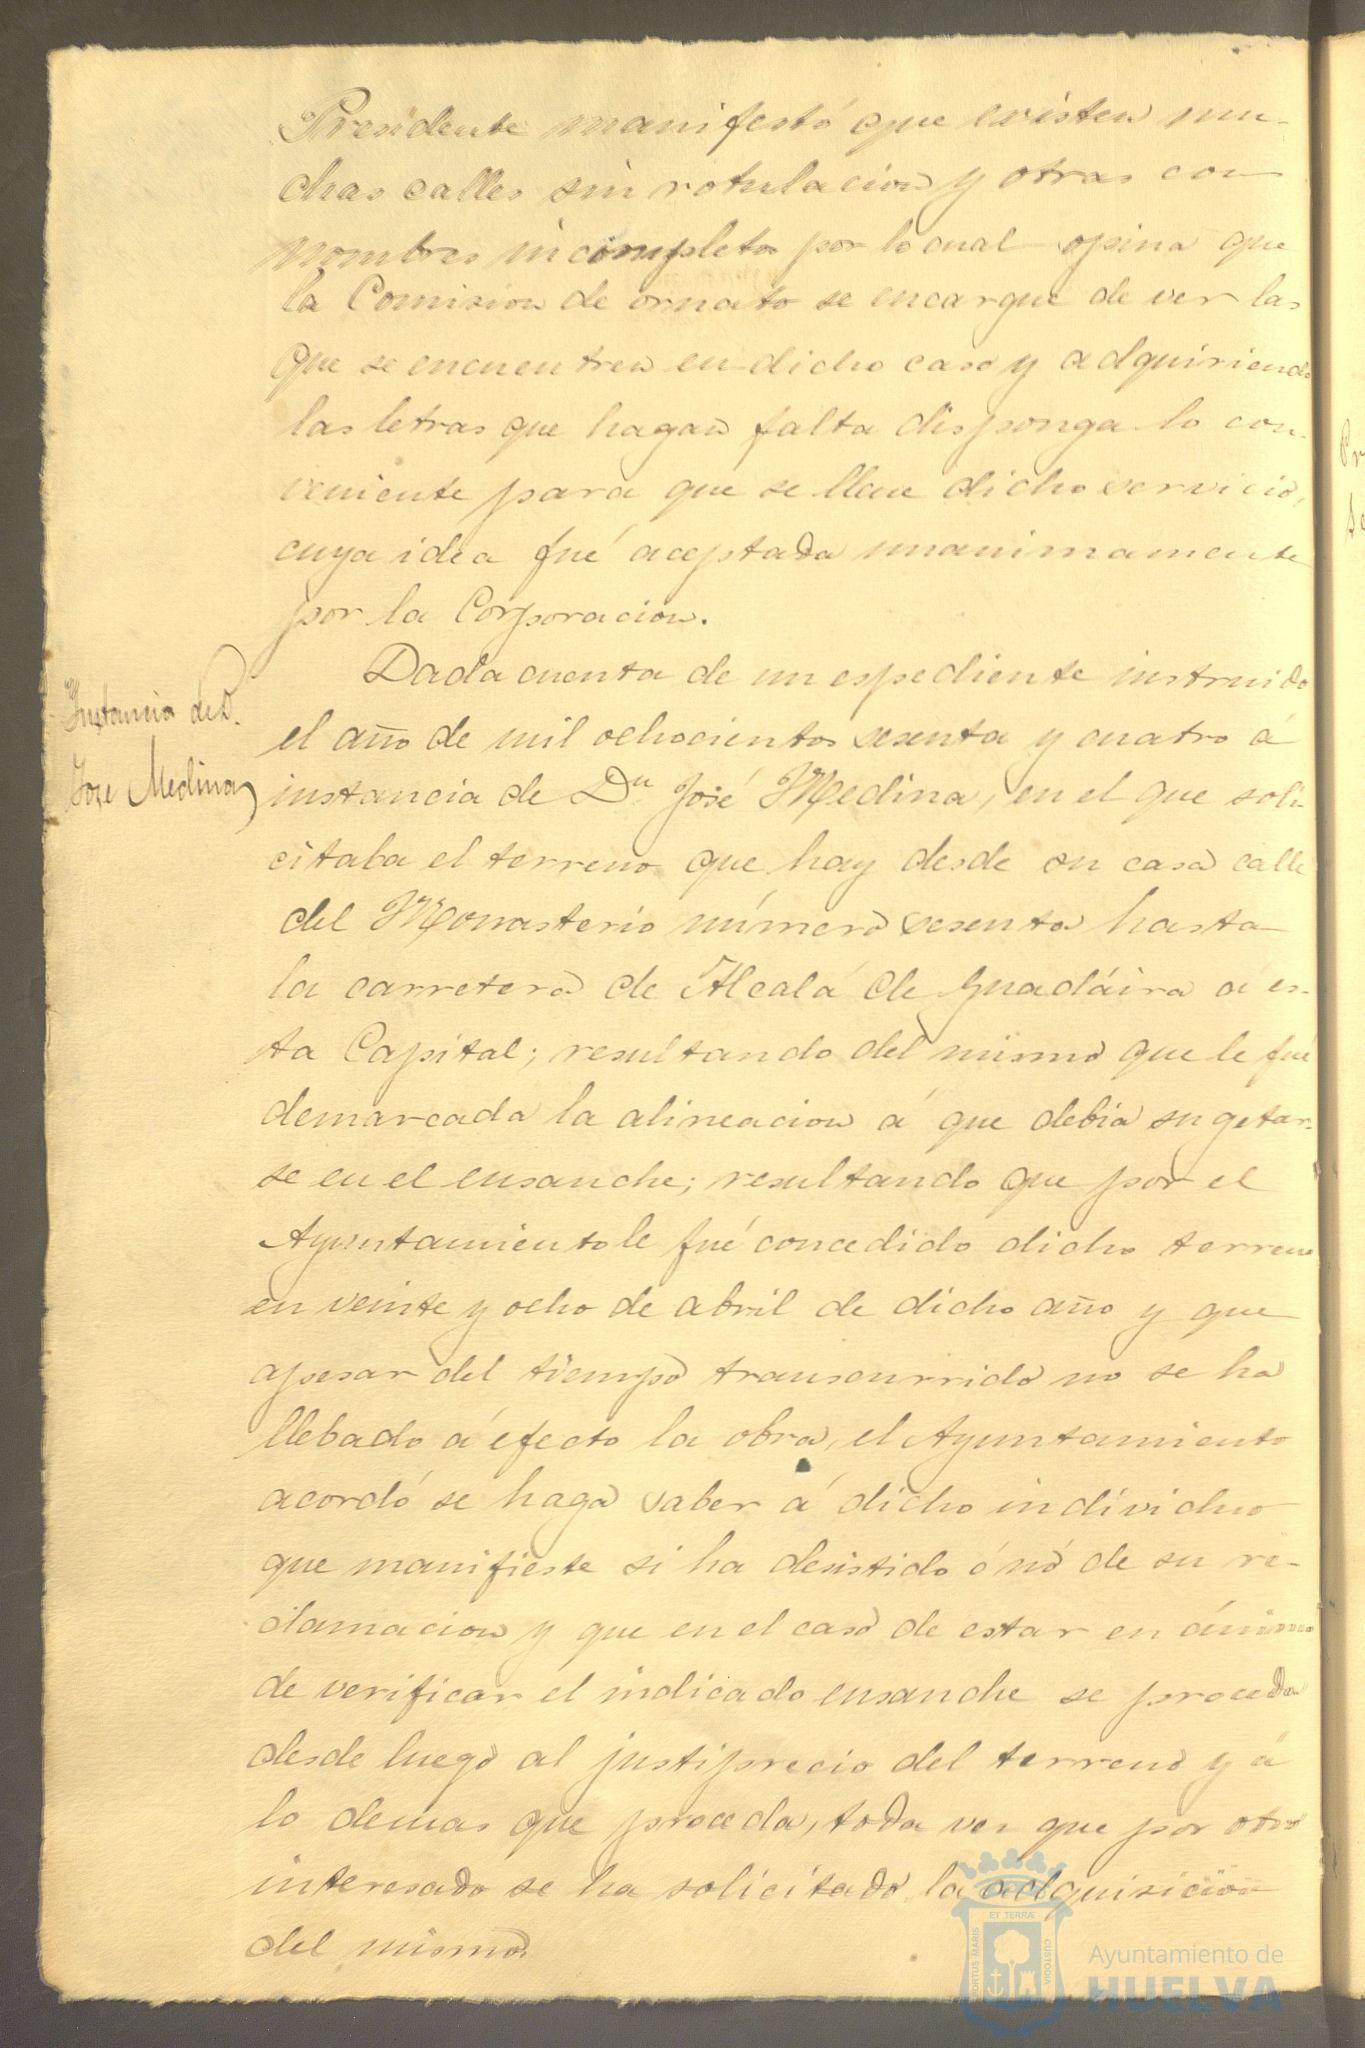 Presidente manifestó que existen mu-
chas calles sin rotulacion y otras con
nombres incompletos por lo cual opina que
la Comision de ornato se encargue de ver las
que se encuentren en dicho caso y adquiriendo
las letras que hagan falta disponga lo con-
veniente para que se llene dicho servicio,
cuya idea fué aceptada unanimamente
por la Corporacion.
Instancia de D.
Jose Medina
Dada cuenta de un espediente instruido
el año de mil ochocientos sesenta y cuatro á
instancia de Dn José Medina, en el que soli-
citaba el terreno que hay desde su casa calle
del Monasterio número sesenta hasta
la carretera de Alcalá de Guadáira á es-
ta Capital; resultando del mismo que le fué
demarcada la alineacion á que debia sugetar-
se en el ensanche; resultando que por el
Ayuntamiento le fué concedido dicho terreno
en veinte y ocho de abril de dicho año y que
apesar del tiempo transcurrido no se ha
llebado á efecto la obra, el Ayuntamiento
acordó se haga saber á dicho individuo
que manifieste si ha desistido ó nó de su re-
clamacion y que en el caso de estar en ánimo
de verificar el indicado ensanche se proceda
desde luego al justiprecio del terreno y á
lo demas que proceda, toda vez que por otro
interesado se ha solicitado la adquisicion
del mismo.
PORTUS MARIS ET TERRÆ CUSTODIA
Ayuntamiento de
HUELVA
Pr
Se